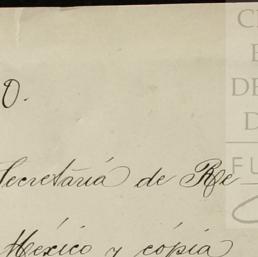 O.
Secretaría de Re
México y cópia
C
E
DE
D
FU